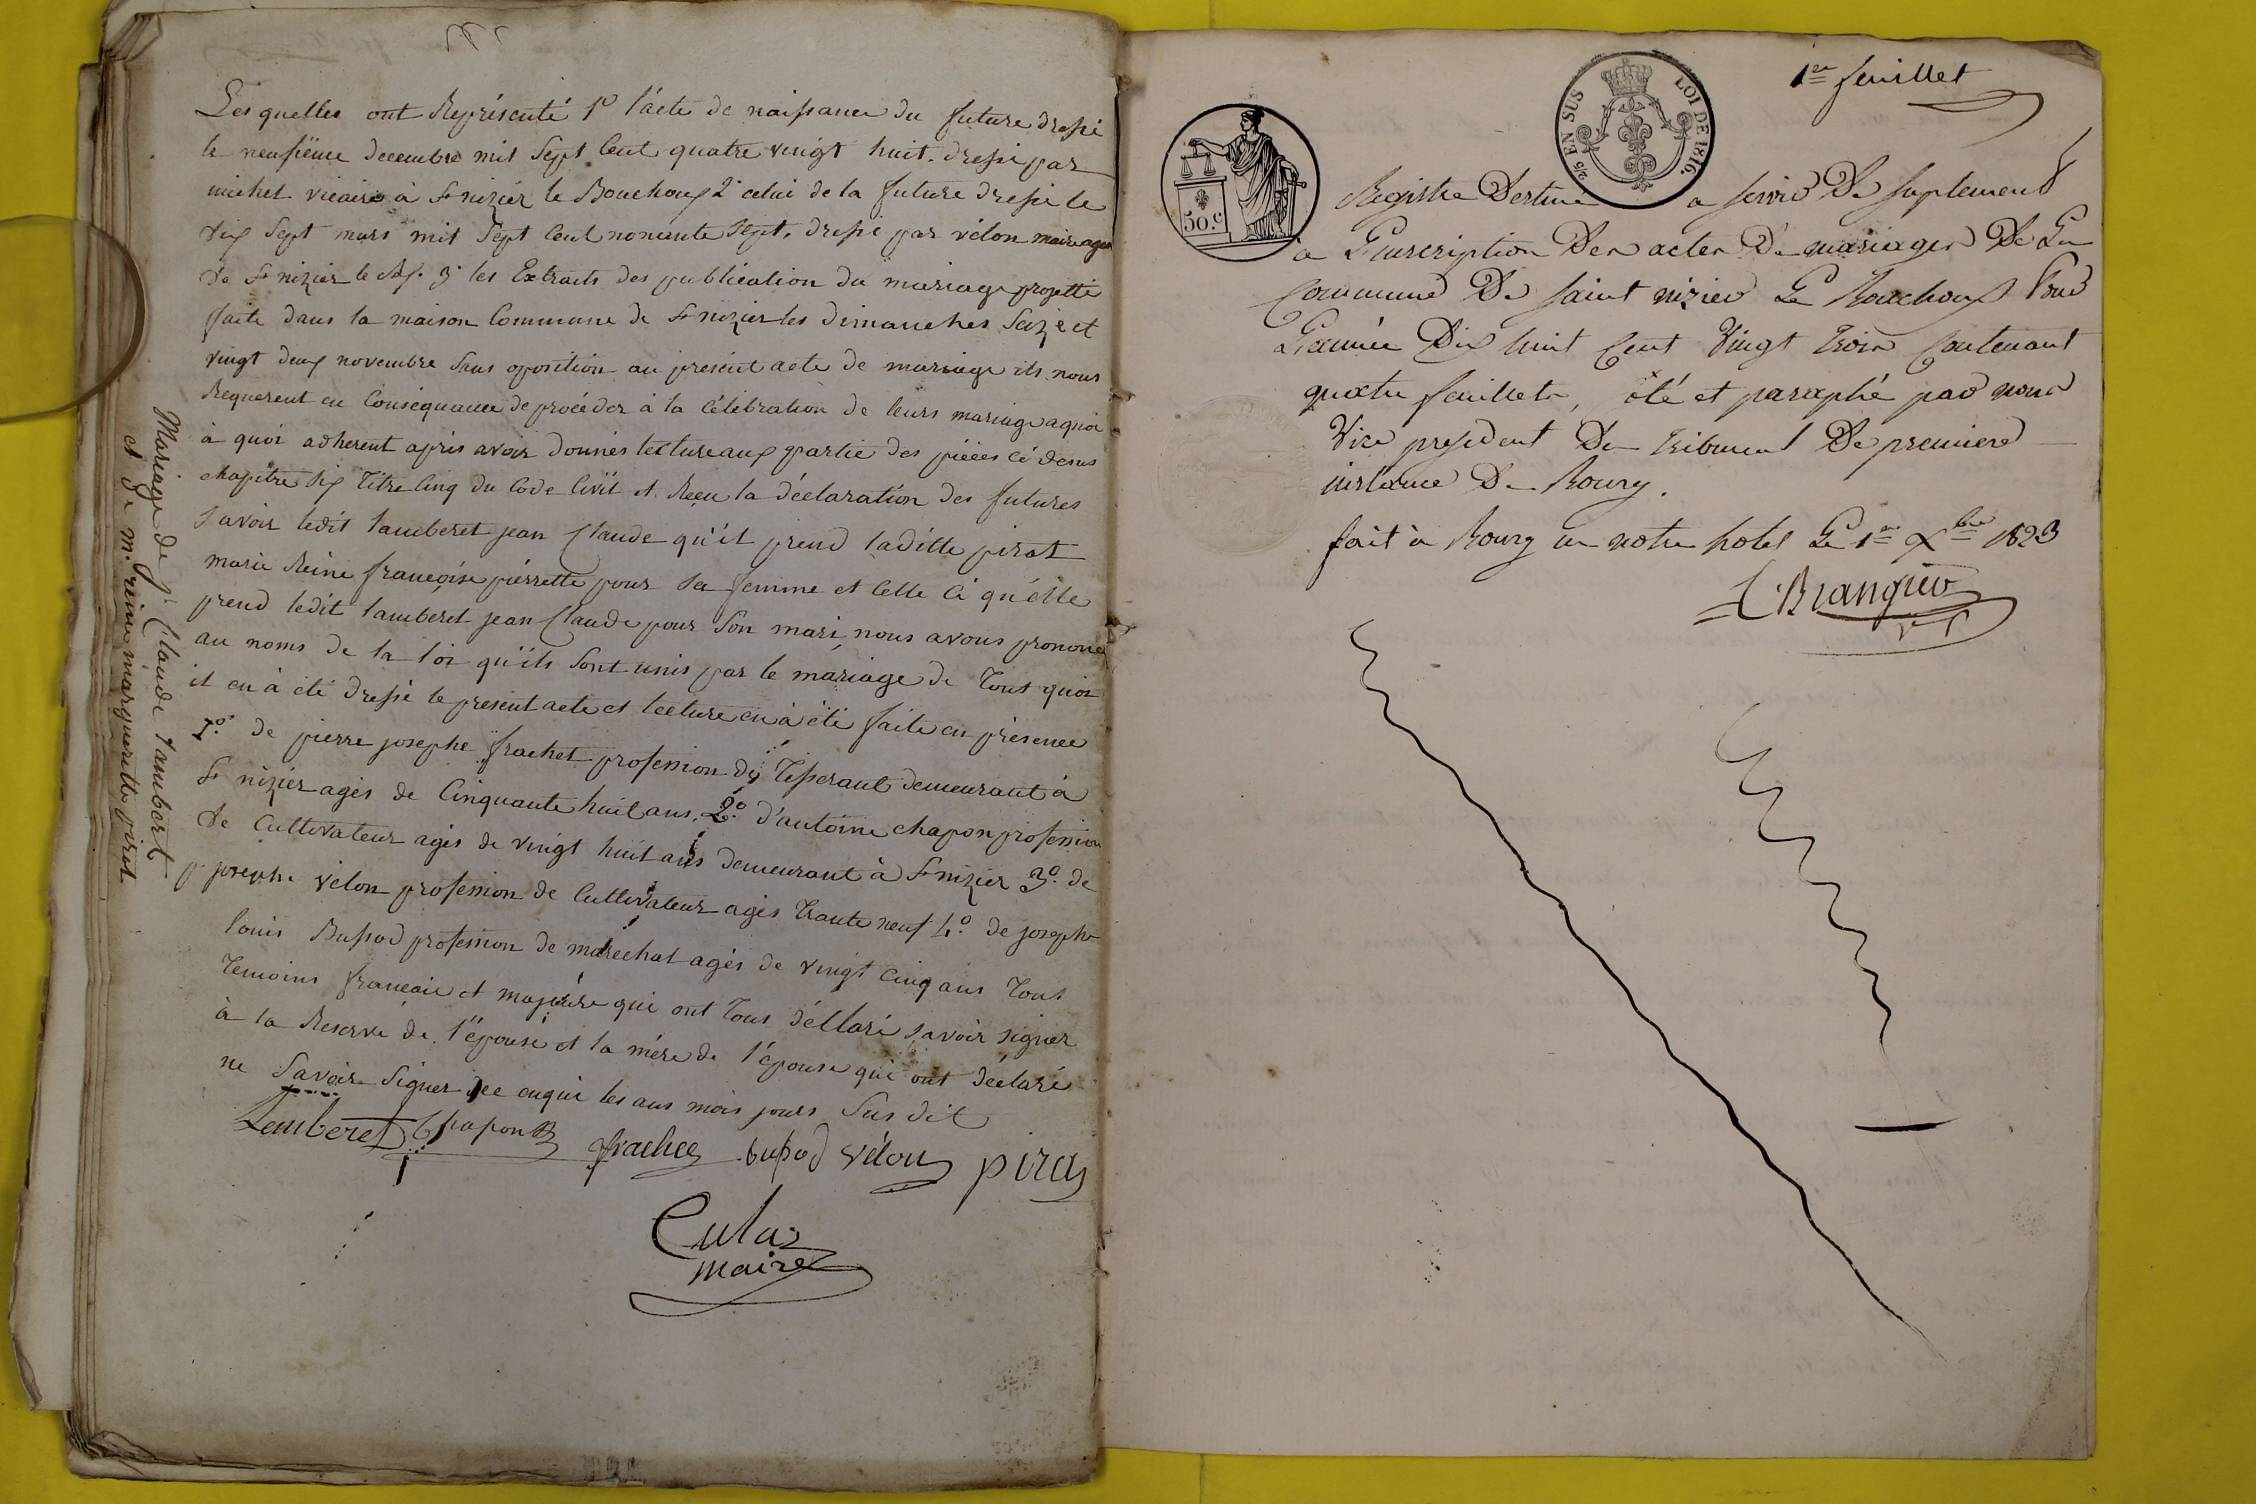 Lesquelles ont Représenté 1o l'acte de naissance du future dressé
le neufiême decembre mil Sept Cent quatre vingt huit. dressé par
michet vicaire à St nizier le Bouchoux 2o celui de la future dressé le
dix Sept mars mil Sept Cent nonente Sept, dressé par vélon maire agen
de St nizier le Bx. 3o les Extraits des publication du mariage projetté
faite dans la maison Commune de St nizier les dimanches Seize et
vingt deux novembre Sans oposition au présent acte de mariage ils nous
Requerent en Conséquance de procéder à la Célébration de leurs mariage aquoi
à quoi adherent après avoir donnés lecture aux partie des pièces ci desus
chapitre six Titre Cinq du Code Civil et Reçu la déclaration des futures
savoir ledit lamberet jean Claude qu'il prend laditte pirat
marie Reine françoise piérrette pour sa femme et Celle Ci qu'élle
prend ledit lamberet jean Claude pour Son mari, nous avons prononcé
au noms de la loi qu'ils Sont unis par le mariage de Tout quoi
il en à été dressé le présent acte et lecture en à été faite en présence
1o. de piérre josephe frachet profession de Tisserant demeurant à
St nizier agés de Cinquante huit ans, 2o. d'antoine chapon profession
de Cultivateur agés de vingt huit ans demeurant à St nizier 3o. de
p. josephe vélon profession de Cultivateur agés Trante neuf 4.o de joseph
louis Bussod profession de maréchal agés de vingt Cinq ans Tous
Temoins français et majeure qui ont Tous déclaré savoir signer
à la Reserve de l'épouse et la mére de l'épouse qui ont déclaré
ne Savoir Signer de enquis les ans mois jours Sus dit
Lamberet Chapon frachet bussod vélon pirat
Culaz
maire
Mariage de jn Claude lamberet
et de m. reine marguerite pirat
1er feuillet
2/5 EN SUS LOI DE 1816.
50.c
Registre Destiné a servir De Suplement
à L'inscription Des actes De mariages De La
Commune De Saint nizier Le Bouchoux Pour
L'année Dix huit Cent Vingt Trois Contenant
quatre feuillets, coté et paraphé par nous
Vice president Du Tribunal De premiere
instance De Bourg.
fait à Bourg en notre hotel Le 1er Xbre 1823